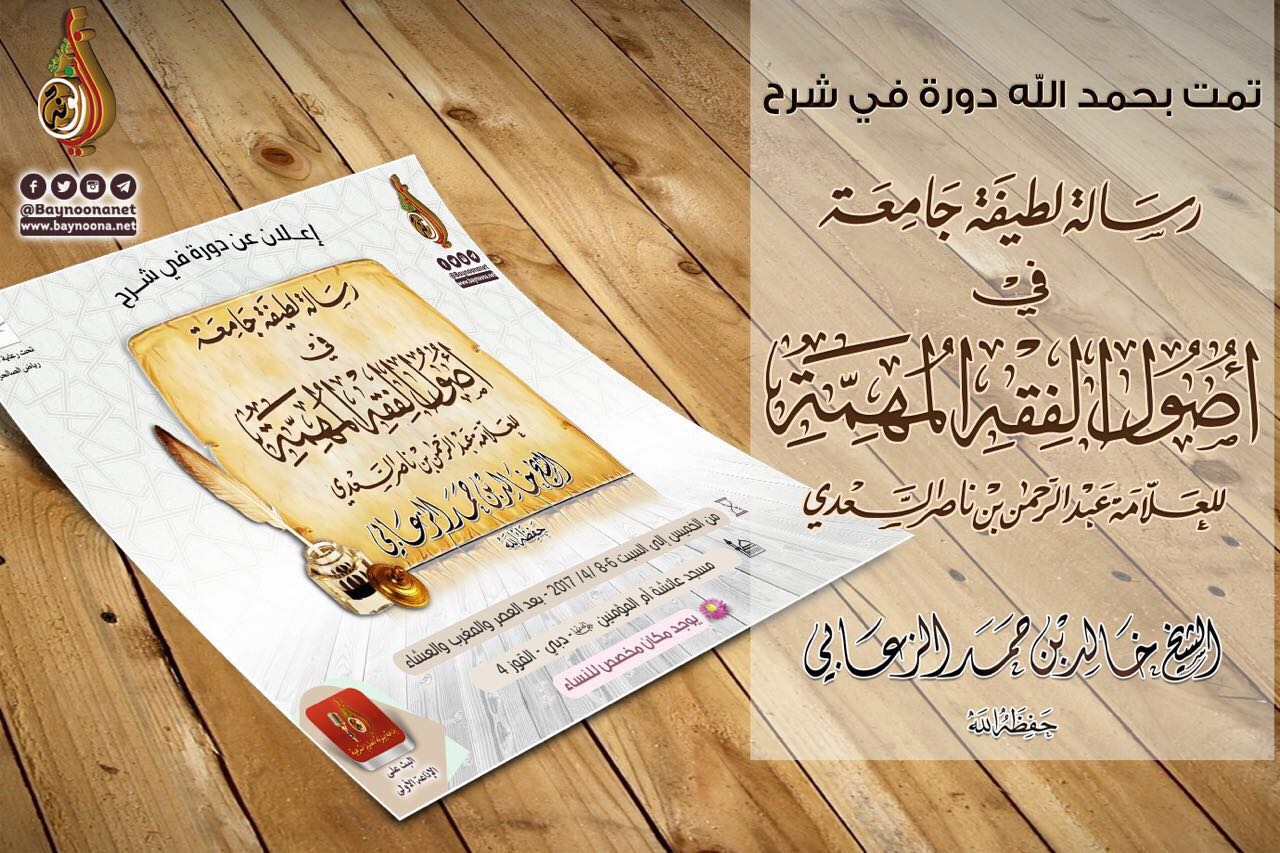 تمت بحمد الله دورة في شرح
رسالة لطيفة جامعة
في
أصول الفقه المهمة
للعلامة عبد الرحمن بن ناصر السعدي
الشيخ خالد بن حمد الزعابي
حفظه الله
@Baynoonanet
www.baynoona.net
إعلان عن دورة في شرح
رسالة لطيفة جامعة
في
أصول الفقه المهمة
للعلامة عبد الرحمن بن ناصر السعدي
الشيخ خالد بن حمد الزعابي
حفظه الله
من الخميس إلى السبت 6-8 /4/ 2017 - بعد العصر والمغرب والعشاء
مسجد عائشة أم المؤمنين - دبي - القوز 4
يوجد مكان مخصص للنساء
البث على
الإذاعة الأولى
@Baynoonanet
www.baynoona.net
تحت رعاية